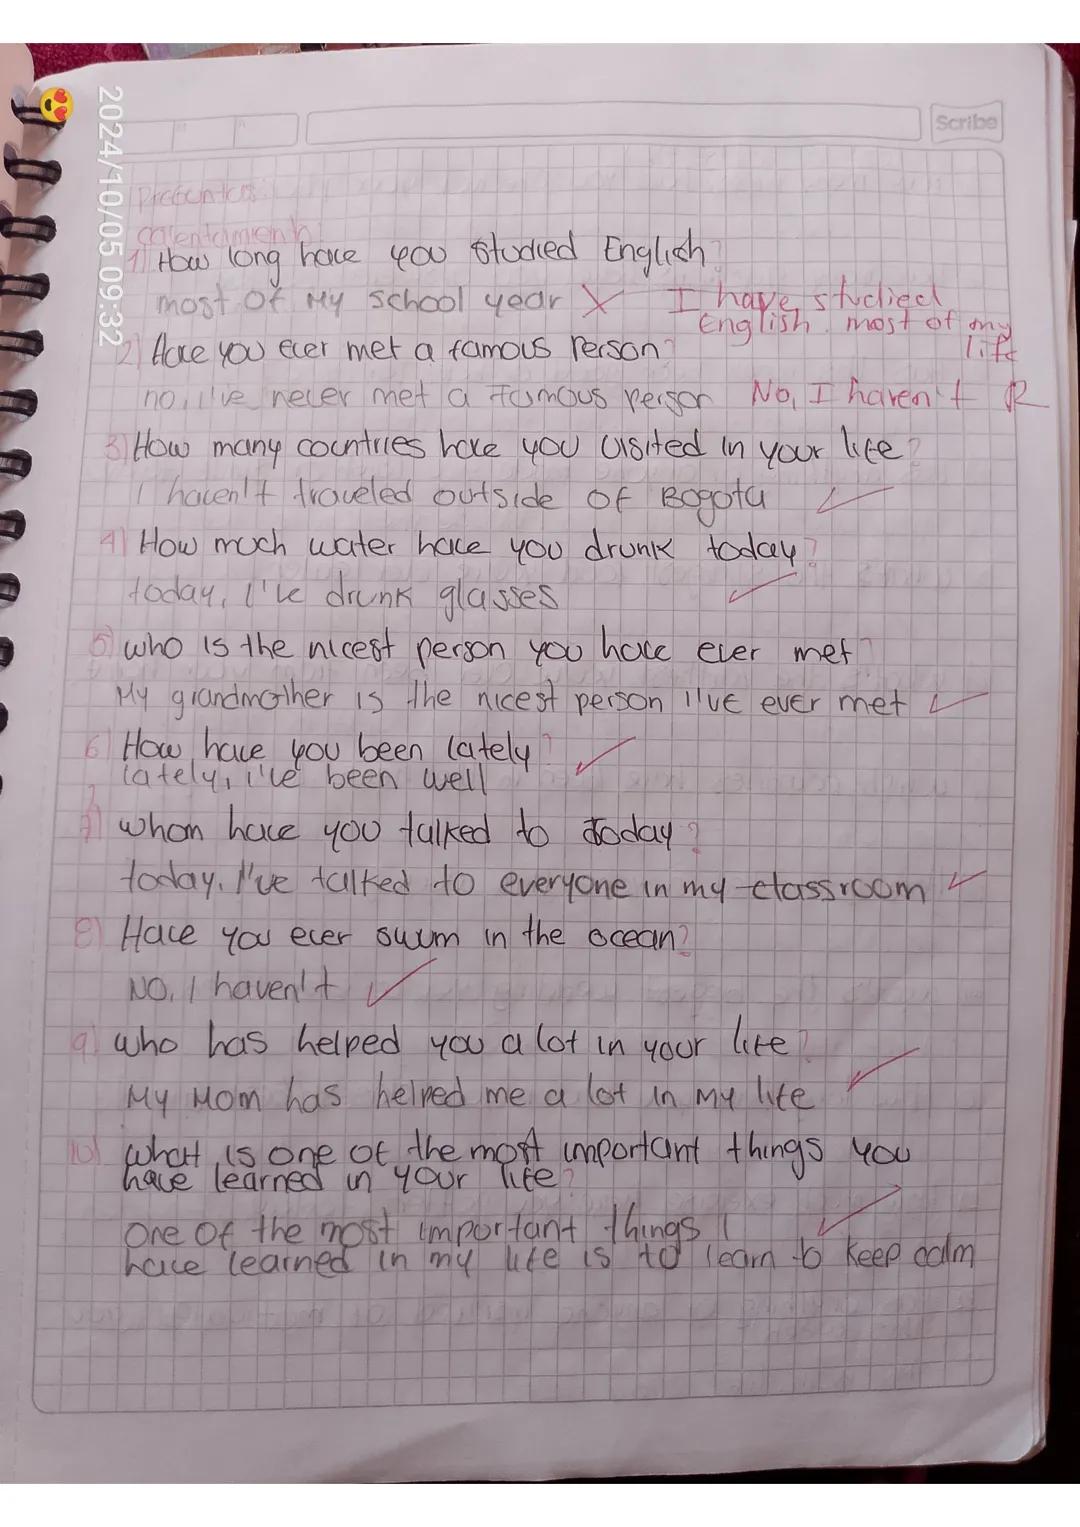 2024/10/05 09:32
Scribe
Preguntas
calentamiento
1) How long have you studied English?
most of My school year X I have studied English most of my life
2) Have you ever met a famous Person?
no, I've never met a Famous person No, I haven't R
3) How many countries have you visited in your life?
I haven't traveled outside of Bogota
4) How much water have you drunk today?
today, I've drunk glasses
5) who is the nicest person you have ever met?
My grandmother is the nicest person I've ever met
6) How have you been lately?
lately, I've been well
7) whom have you talked to today?
today, I've talked to everyone in my classroom
8) Have you ever swum in the ocean?
NO, I haven't
9) who has helped you a lot in your life?
My Mom has helped me a lot in My life
10) what is one of the most important things you
have learned in your life?
one of the most important things I
have learned in my life is to learn to keep calm